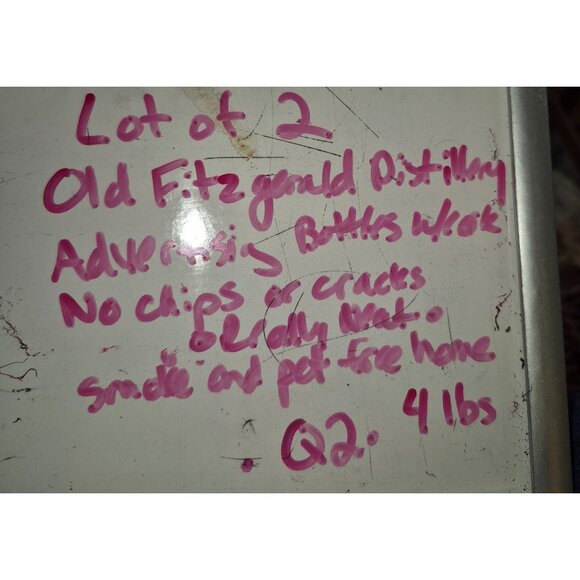 Lot of 2
Old Fitzgerald Distillery
Advertisig Bottles w/cork
No chips or cracks
Really Neat.
smoke and pet free home
4 lbs
Q2.